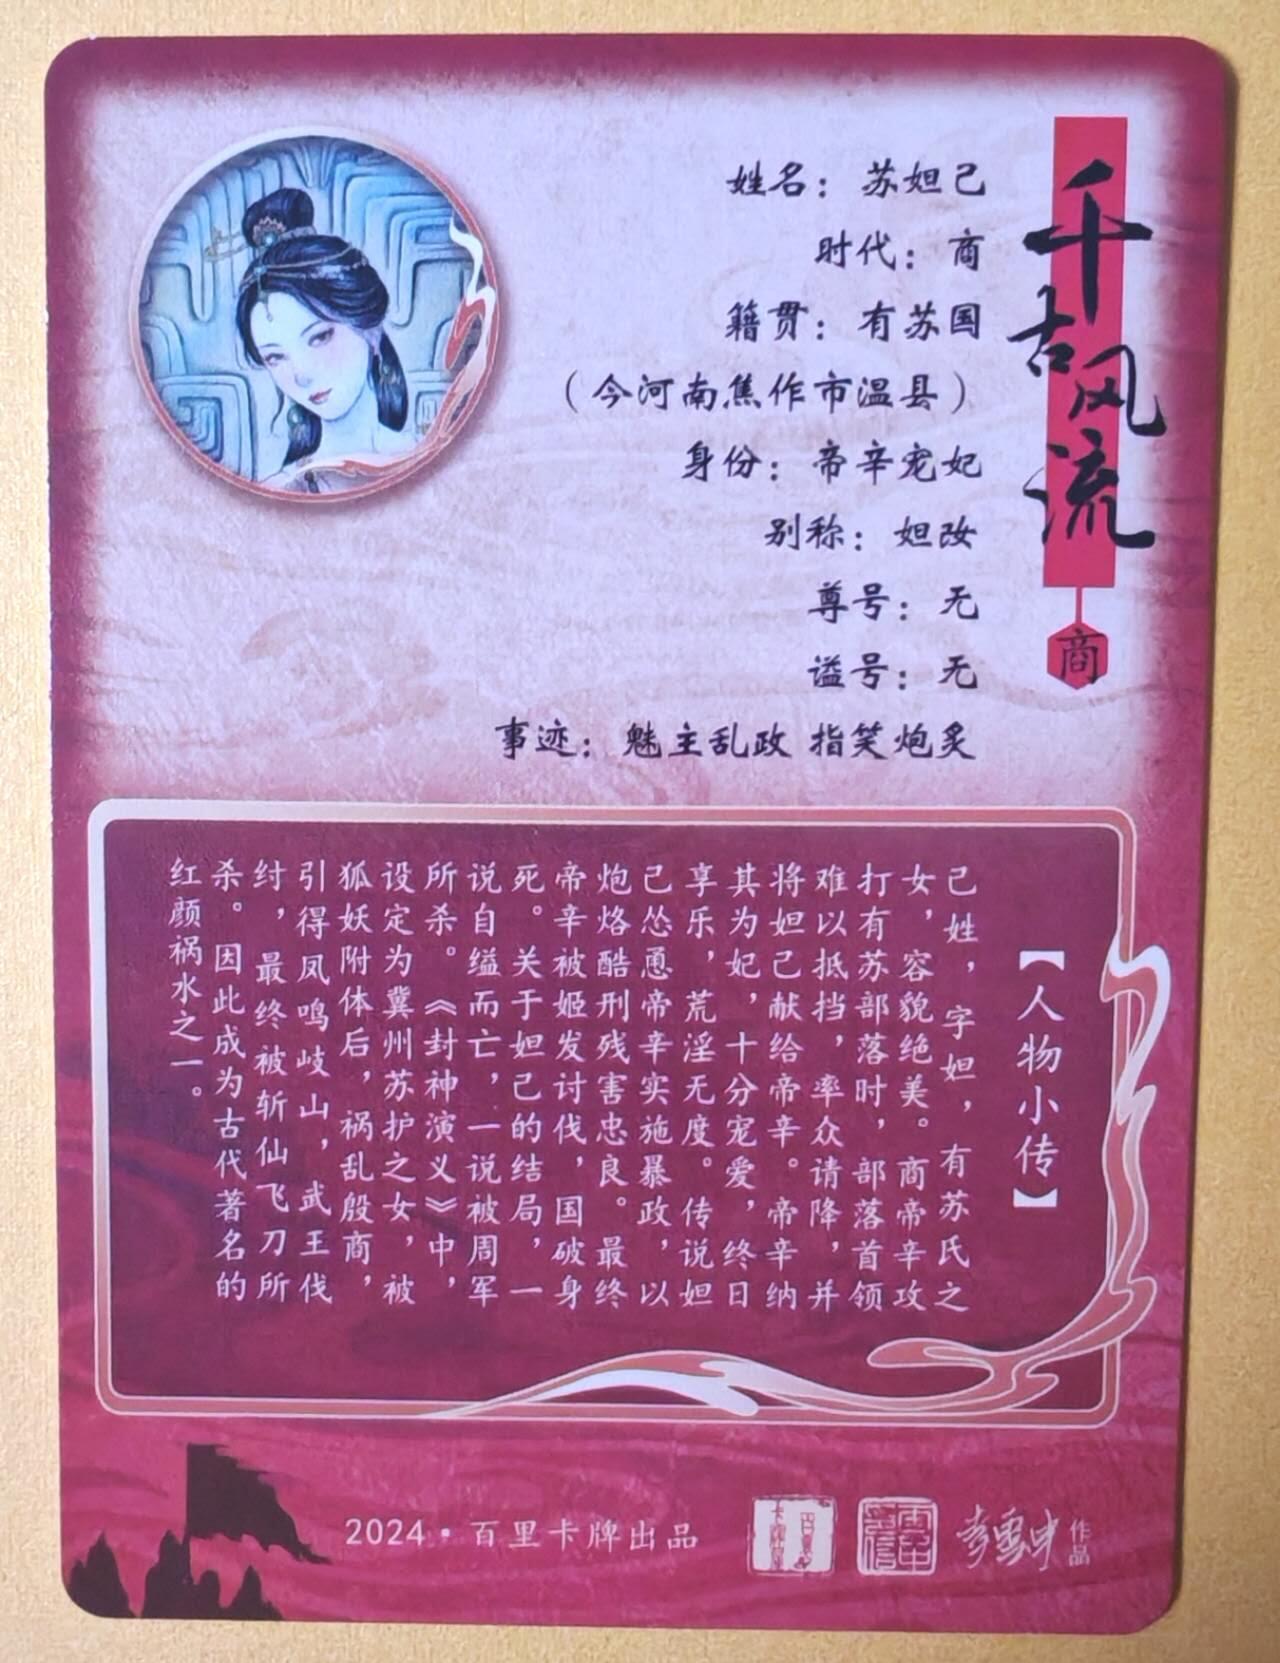 千古风流
商
姓名：苏妲己
时代：商
籍贯：有苏国
（今河南焦作市温县）
身份：帝辛宠妃
别称：妲
尊号：无
谥号：无
事迹：魅主乱政 指笑炮炙
【人物小传】
己姓，字妲，有苏氏之
女，容貌绝美。商帝辛攻
打有苏部落时，部落首领
难以抵挡，率众请降，并
将妲己献给帝辛。帝辛纳
其为妃，十分宠爱，终日
享乐，荒淫无度。传说妲
己怂恿帝辛实施暴政，以
炮烙酷刑残害忠良。最终
帝辛被姬发讨伐，国破身
死。关于妲己的结局，一
说自缢而亡，一说被周军
所杀。《封神演义》中，
设定为冀州苏护之女，被
狐妖附体后，祸乱殷商，
引得凤鸣岐山，武王伐
纣，最终被斩仙飞刀所
杀。因此成为古代著名的
红颜祸水之一。
2024·百里卡牌出品
李雲中
作品